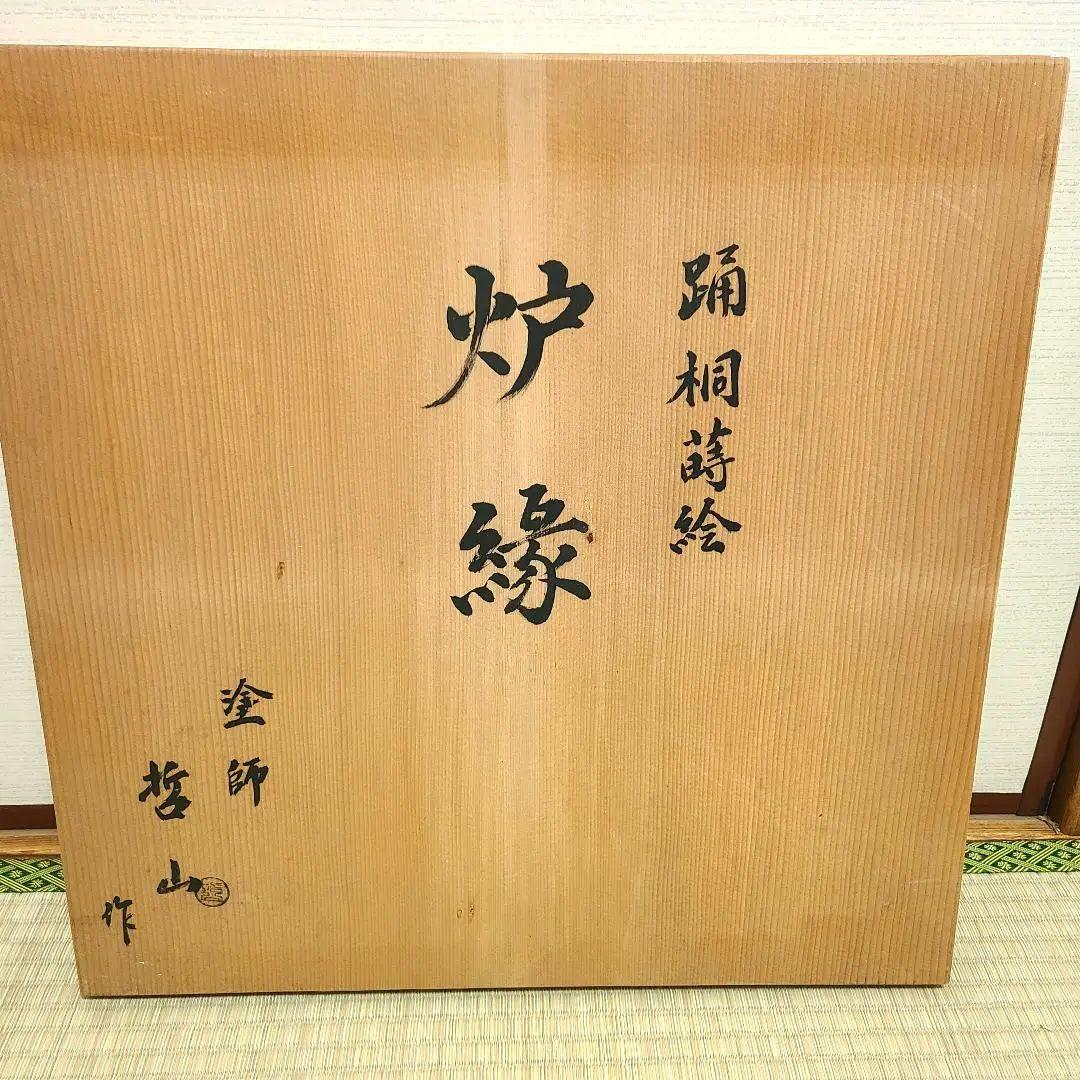 踊桐蒔絵
炉縁
塗師
哲山
作